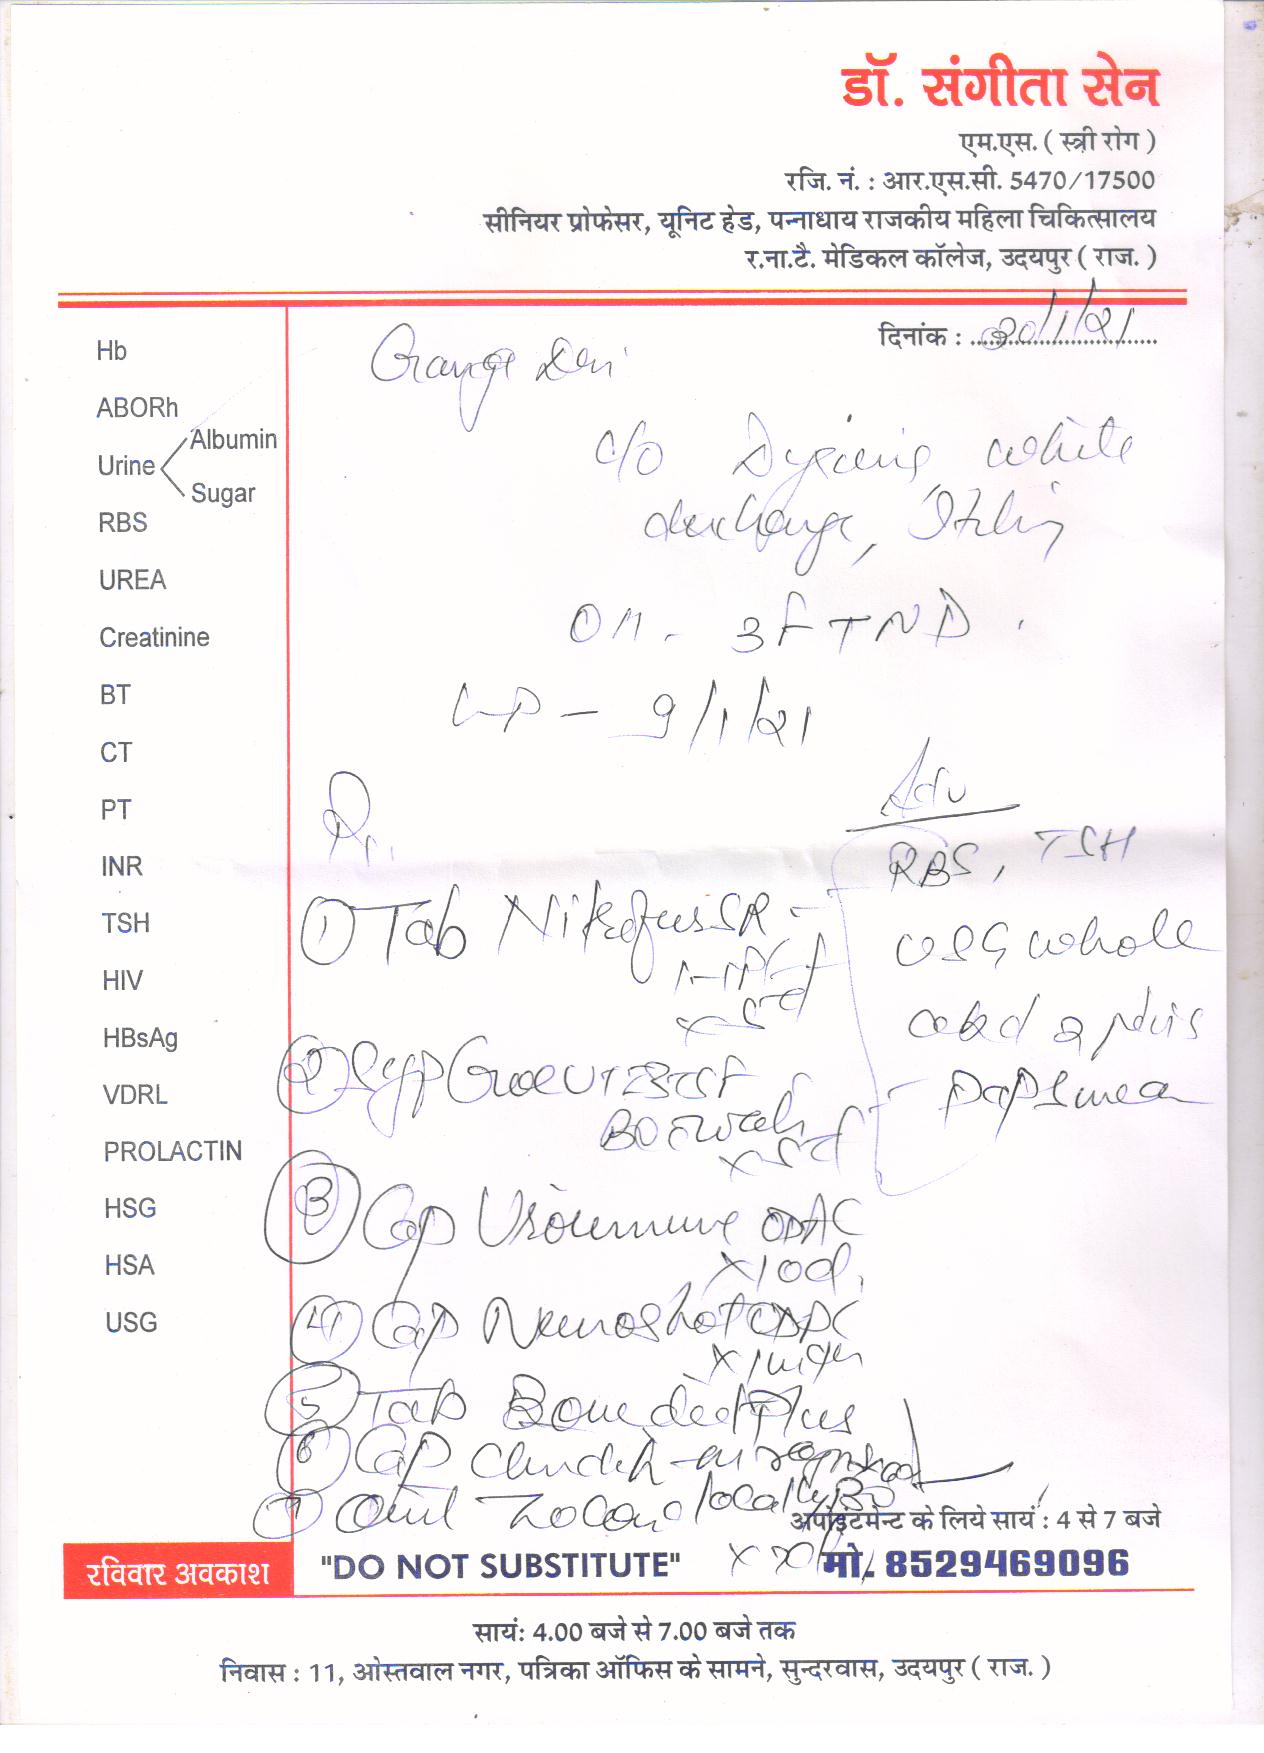 डॉ. संगीता सेन
एम.एस. ( स्त्री रोग )
रजि. नं. : आर.एस.सी. 5470/17500
सीनियर प्रोफेसर, यूनिट हेड, पन्नाधाय राजकीय महिला चिकित्सालय
र.ना.टै. मेडिकल कॉलेज, उदयपुर ( राज. )
दिनांक : 20/1/21
Hb
ABORh
Urine
Albumin
Sugar
RBS
UREA
Creatinine
BT
CT
PT
INR
TSH
HIV
HBsAg
VDRL
PROLACTIN
HSG
HSA
USG
c/o white
discharge, Itching
OH - 3FTND.
LMP - 9/1/21
Adv
RBS, TSH
USG whole
abd & pelvis
Papsmear
Rx
① Tab SR
x 5d
② Syp
x 5d
③ Cap OD AC
x 10d
④ Cap Neuroshot OD PC
⑤ Tab Plus
⑥ Cap
⑦ Oint locally BD
अपोइंटमेन्ट के लिये सायं : 4 से 7 बजे
रविवार अवकाश
"DO NOT SUBSTITUTE"
मो. 8529469096
सायं: 4.00 बजे से 7.00 बजे तक
निवास : 11, ओस्तवाल नगर, पत्रिका ऑफिस के सामने, सुन्दरवास, उदयपुर ( राज. )